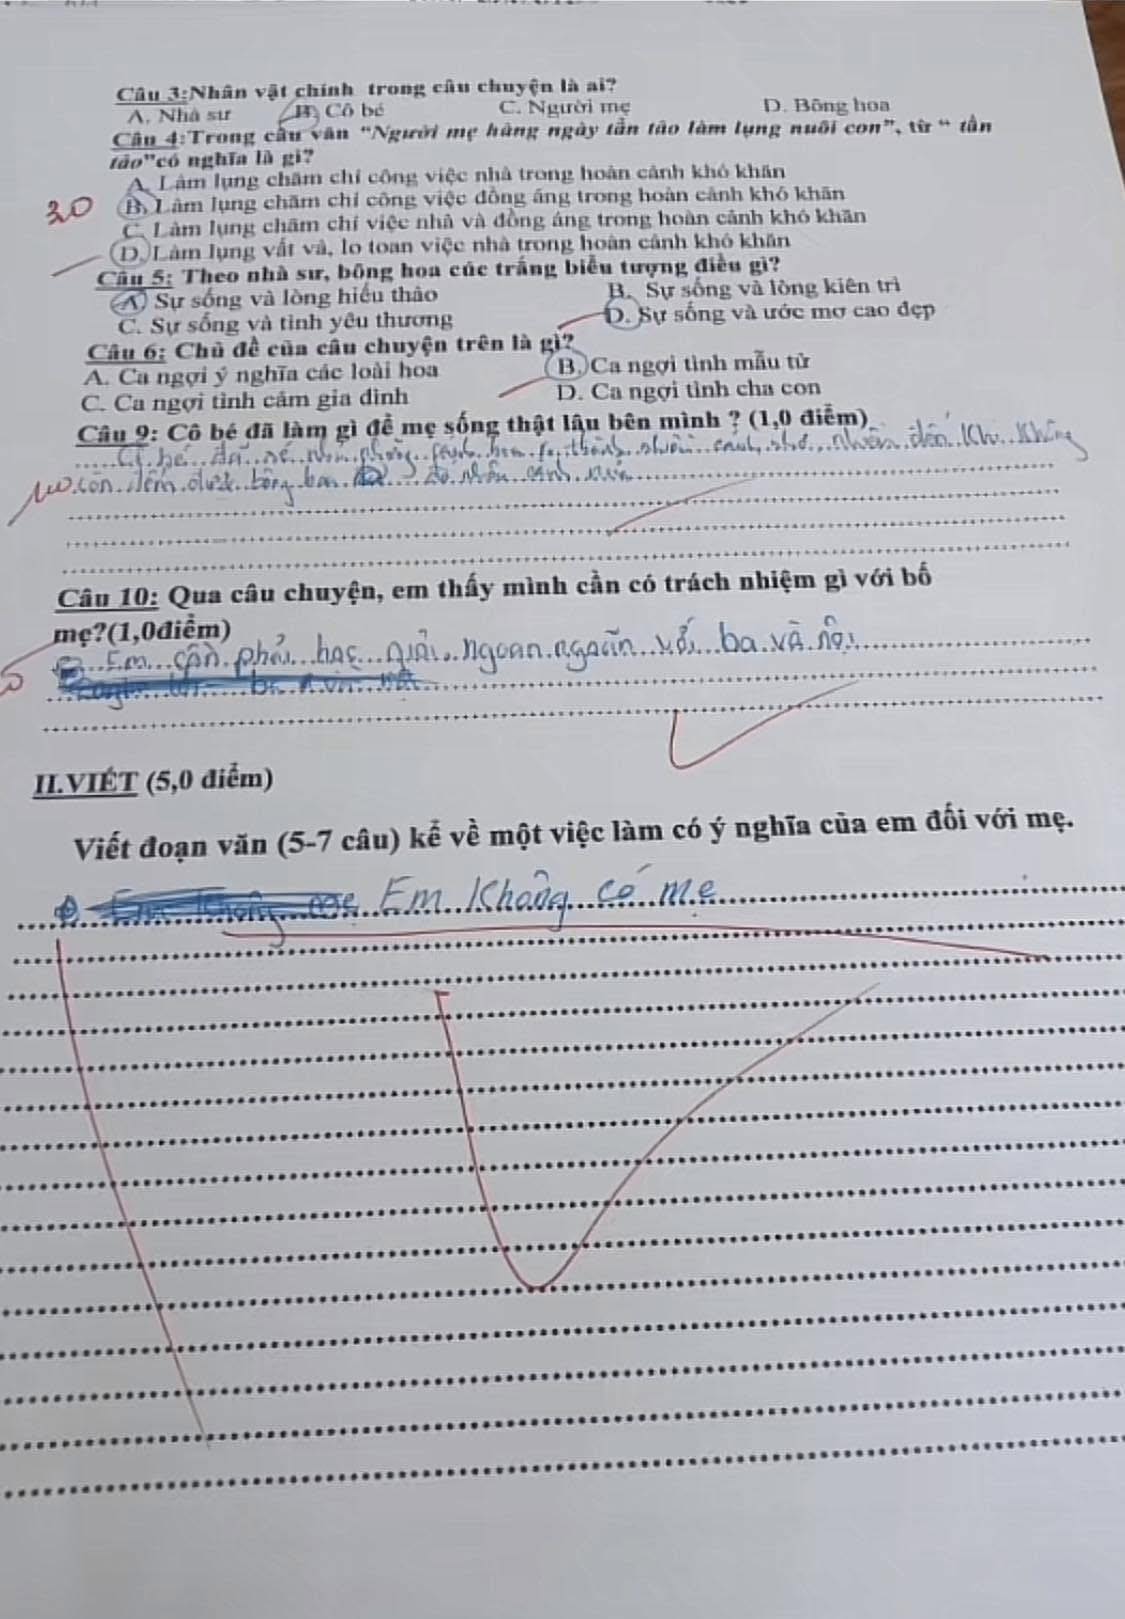 Câu 3:Nhân vật chính trong câu chuyện là ai?
A. Nhà sư B) Cô bé C. Người mẹ D. Bông hoa
Câu 4:Trong câu văn "Người mẹ hàng ngày tần tảo làm lụng nuôi con", từ " tần
tảo"có nghĩa là gì?
A. Làm lụng chăm chỉ công việc nhà trong hoàn cảnh khó khăn
3.0 B. Làm lụng chăm chỉ công việc đồng áng trong hoàn cảnh khó khăn
C. Làm lụng chăm chỉ việc nhà và đồng áng trong hoàn cảnh khó khăn
D. Làm lụng vất vả, lo toan việc nhà trong hoàn cảnh khó khăn
Câu 5: Theo nhà sư, bông hoa cúc trắng biểu tượng điều gì?
A Sự sống và lòng hiếu thảo B. Sự sống và lòng kiên trì
C. Sự sống và tình yêu thương D. Sự sống và ước mơ cao đẹp
Câu 6: Chủ đề của câu chuyện trên là gì?
A. Ca ngợi ý nghĩa các loài hoa B. Ca ngợi tình mẫu tử
C. Ca ngợi tình cảm gia đình D. Ca ngợi tình cha con
Câu 9: Cô bé đã làm gì để mẹ sống thật lâu bên mình ? (1,0 điểm)
bé đã xé cánh nhỏ nhiên đến khi không
còn đếm được bông
Câu 10: Qua câu chuyện, em thấy mình cần có trách nhiệm gì với bố
mẹ?(1,0điểm)
Em cần phải học giỏi ngoan ngoãn với ba và nội
II.VIẾT (5,0 điểm)
Viết đoạn văn (5-7 câu) kể về một việc làm có ý nghĩa của em đối với mẹ.
Em không có mẹ